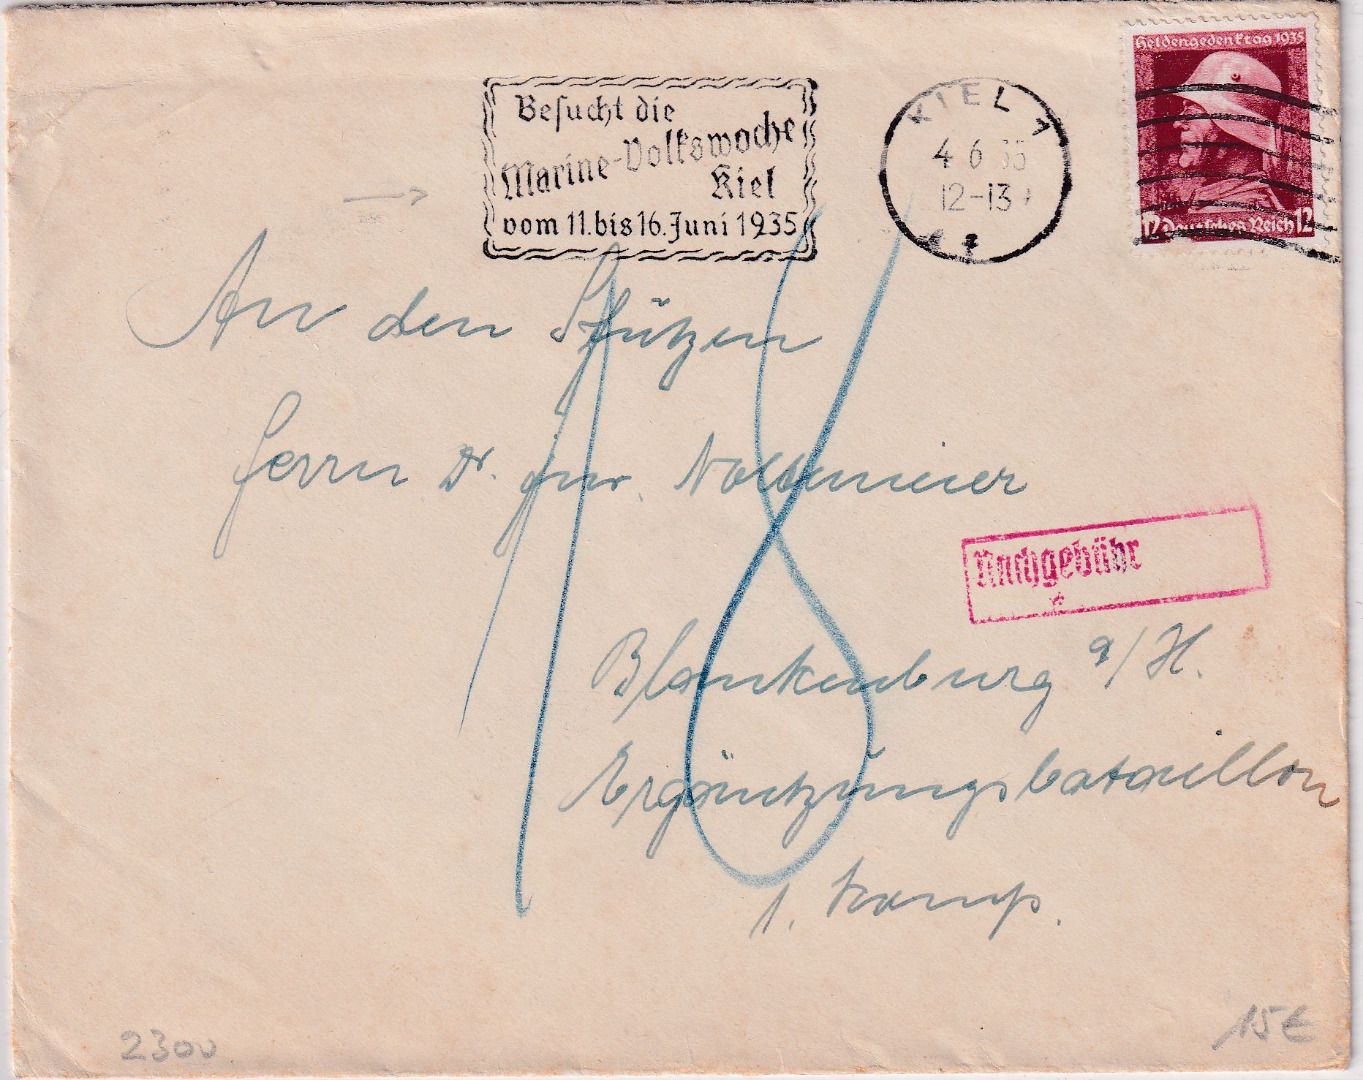 Besucht die
Marine-Volkswoche
Kiel
vom 11. bis 16. Juni 1935
KIEL 1
4 6 35
12-13
Heldengedenktag 1935
12 Deutsches Reich 12
An den Schützen
Herrn Dr. jur. Noltemeier
18
Nachgebühr
Blankenburg a/H.
Ergäntzungsbataillon
1. Komp.
2300
15€